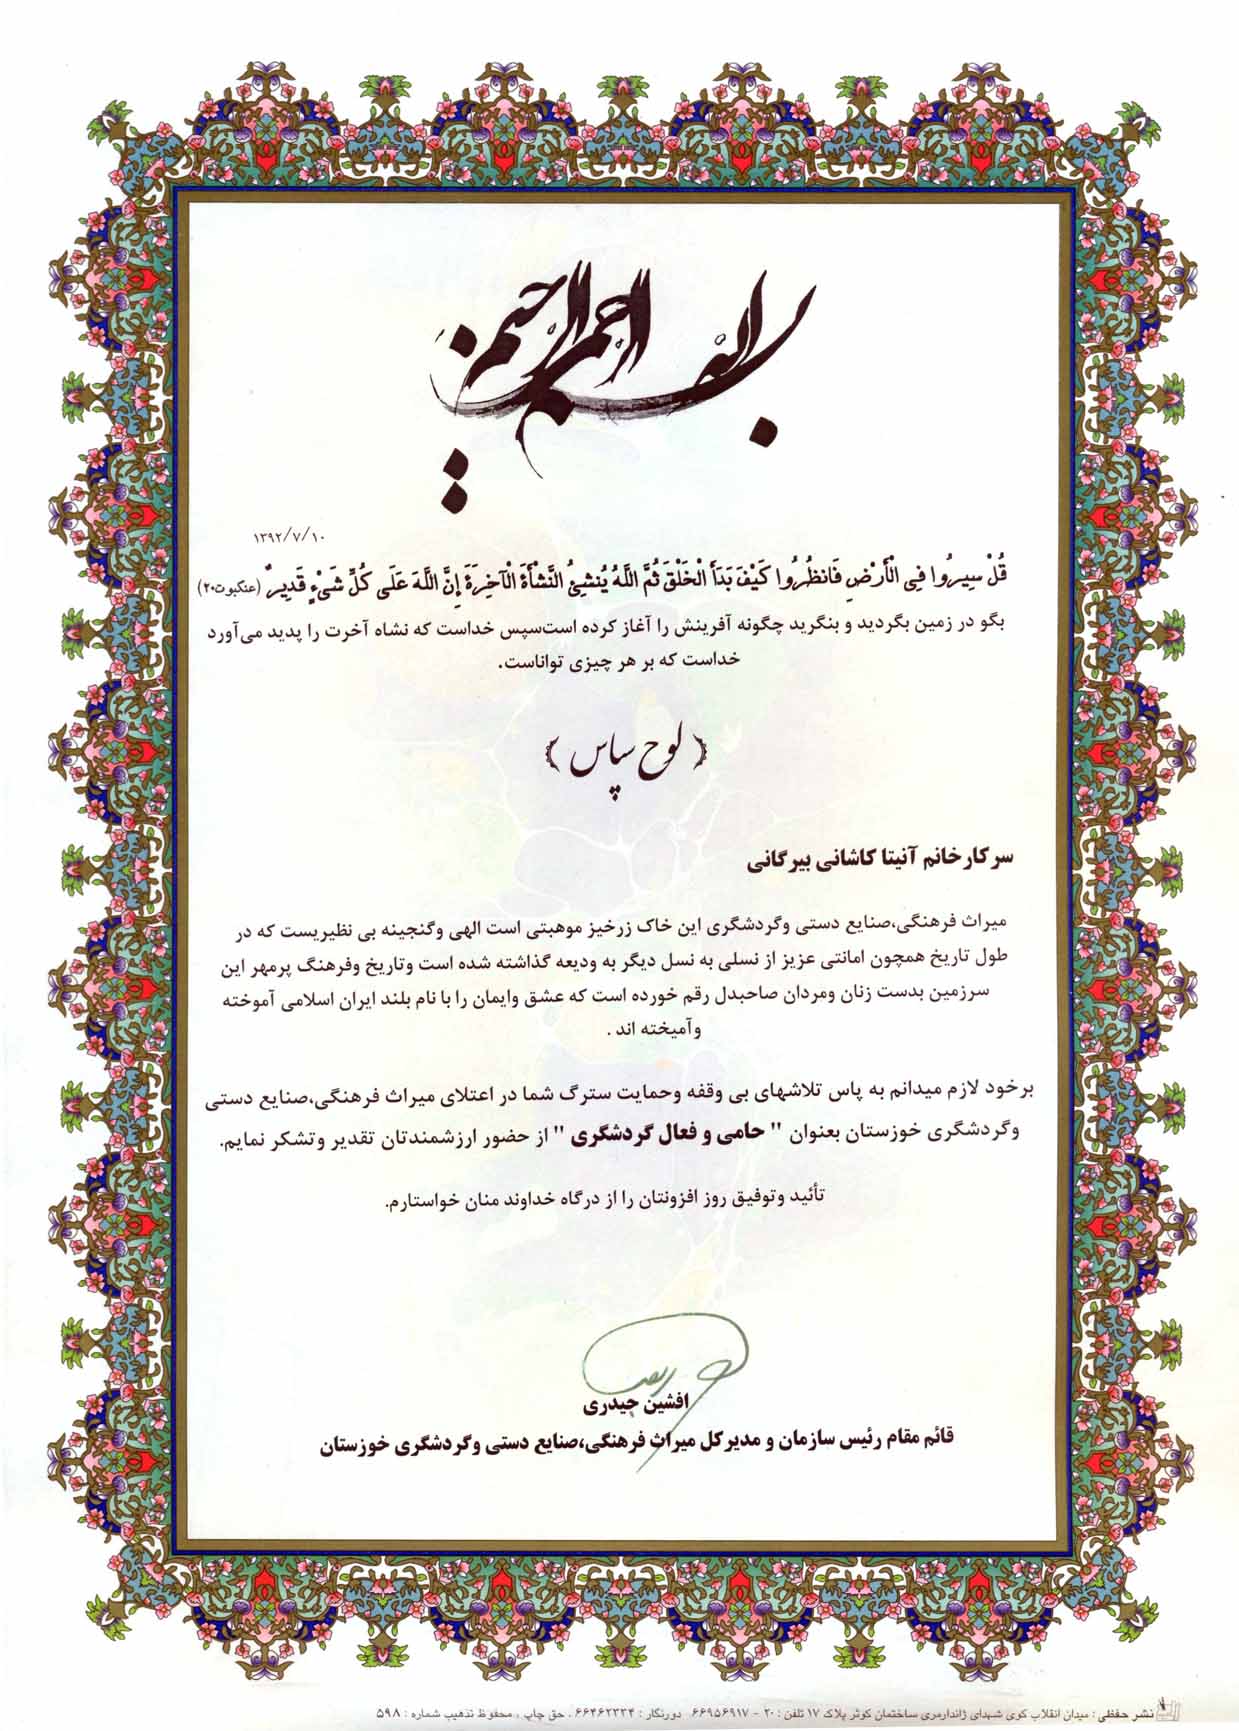 بسم الله الرحمن الرحیم
۱۳۹۲/۷/۱۰
قُلْ سِيرُوا فِي الْأَرْضِ فَانظُرُوا كَيْفَ بَدَأَ الْخَلْقَ ثُمَّ اللَّهُ يُنشِئُ النَّشْأَةَ الْآخِرَةَ إِنَّ اللَّهَ عَلَى كُلِّ شَيْءٍ قَدِيرٌ (عنکبوت۲۰)
بگو در زمین بگردید و بنگرید چگونه آفرینش را آغاز کرده است‌سپس خداست که نشاه آخرت را پدید می‌آورد
خداست که بر هر چیزی تواناست.
﴿ لوح سپاس ﴾
سرکارخانم آنیتا کاشانی بیرگانی
میراث فرهنگی،صنایع دستی وگردشگری این خاک زرخیز موهبتی است الهی وگنجینه بی نظیریست که در
طول تاریخ همچون امانتی عزیز از نسلی به نسل دیگر به ودیعه گذاشته شده است وتاریخ وفرهنگ پرمهر این
سرزمین بدست زنان ومردان صاحبدل رقم خورده است که عشق وایمان را با نام بلند ایران اسلامی آموخته
وآمیخته اند .
برخود لازم میدانم به پاس تلاشهای بی وقفه وحمایت سترگ شما در اعتلای میراث فرهنگی،صنایع دستی
وگردشگری خوزستان بعنوان " حامی و فعال گردشگری " از حضور ارزشمندتان تقدیر وتشکر نمایم.
تأئید وتوفیق روز افزونتان را از درگاه خداوند منان خواستارم.
افشین حیدری
قائم مقام رئیس سازمان و مدیرکل میراث فرهنگی،صنایع دستی وگردشگری خوزستان
نشر حفظی : میدان انقلاب کوی شهدای ژاندارمری ساختمان کوثر پلاک ۱۷ تلفن : ۲۰ - ۶۶۹۵۶۹۱۷ دورنگار : ۶۶۴۶۲۳۳۴ . حق چاپ ، محفوظ تذهیب شماره : ۵۹۸